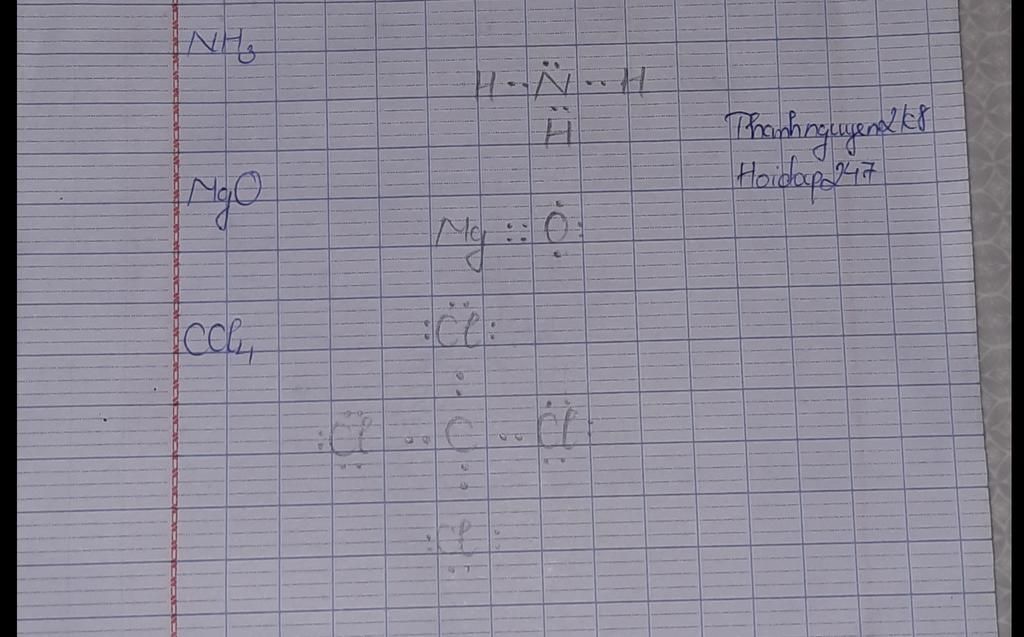 NH₃
H ·· N̈ ·· H
··
H
Thanhnguyen2k8
Hoidap247
MgO
Mg :: O :
CCl₄
: Cl :
: Cl ·· C ·· Cl :
: Cl :